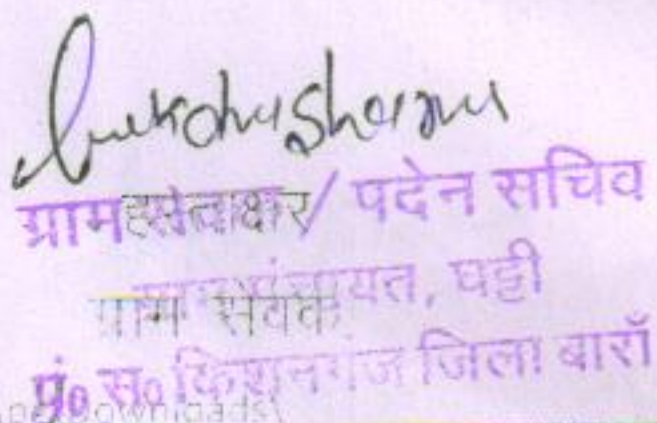 ग्राम सेवक / पदेन सचिव
हस्ताक्षर
ग्राम पंचायत, घट्टी
ग्राम सेवक
पं० स० किशनगंज जिला बाराँ